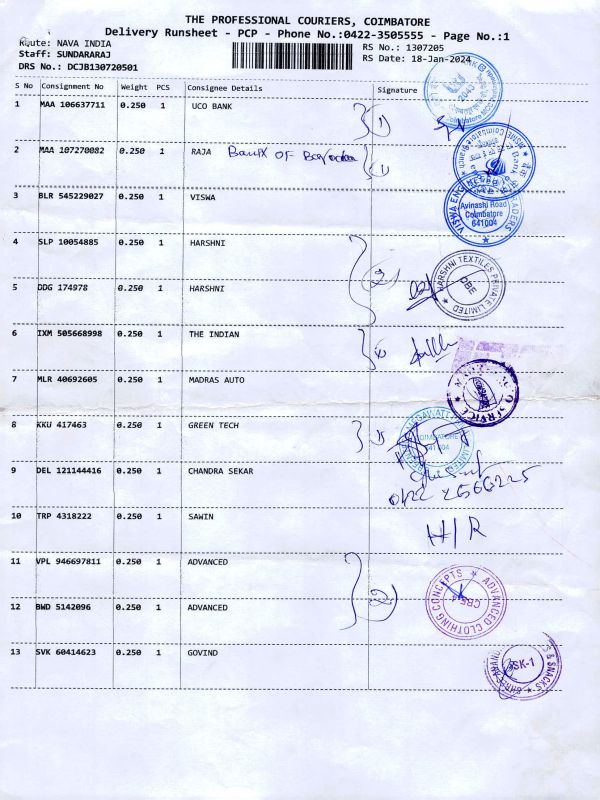 THE PROFESSIONAL COURIERS, COIMBATORE
Delivery Runsheet - PCP - Phone No.:0422-3505555 - Page No.:1
Route: NAVA INDIA RS No.: 1307205
Staff: SUNDARARAJ RS Date: 18-Jan-2024
DRS No.: DCJB130720501
S No Consignment No Weight PCS Consignee Details Signature
1 MAA 106637711 0.250 1 UCO BANK
2 MAA 107270082 0.250 1 RAJA Bank of Baroda
3 BLR 545229027 0.250 1 VISWA
VISWA
Avinashi Road
Coimbatore
641004
4 SLP 10054885 0.250 1 HARSHNI
5 DDG 174978 0.250 1 HARSHNI
HARSHNI TEXTILES PRIVATE LIMITED
CBE
6 IXM 505668998 0.250 1 THE INDIAN
7 MLR 40692605 0.250 1 MADRAS AUTO
SERVICE
8 KKU 417463 0.250 1 GREEN TECH
COIMBATORE
641 004
9 DEL 121144416 0.250 1 CHANDRA SEKAR
0422 2566225
10 TRP 4318222 0.250 1 SAWIN H/R
11 VPL 946697811 0.250 1 ADVANCED
12 BWD 5142096 0.250 1 ADVANCED
ADVANCED CLOTHING CONCEPTS
13 SVK 60414623 0.250 1 GOVIND
& SNACKS
SK-1